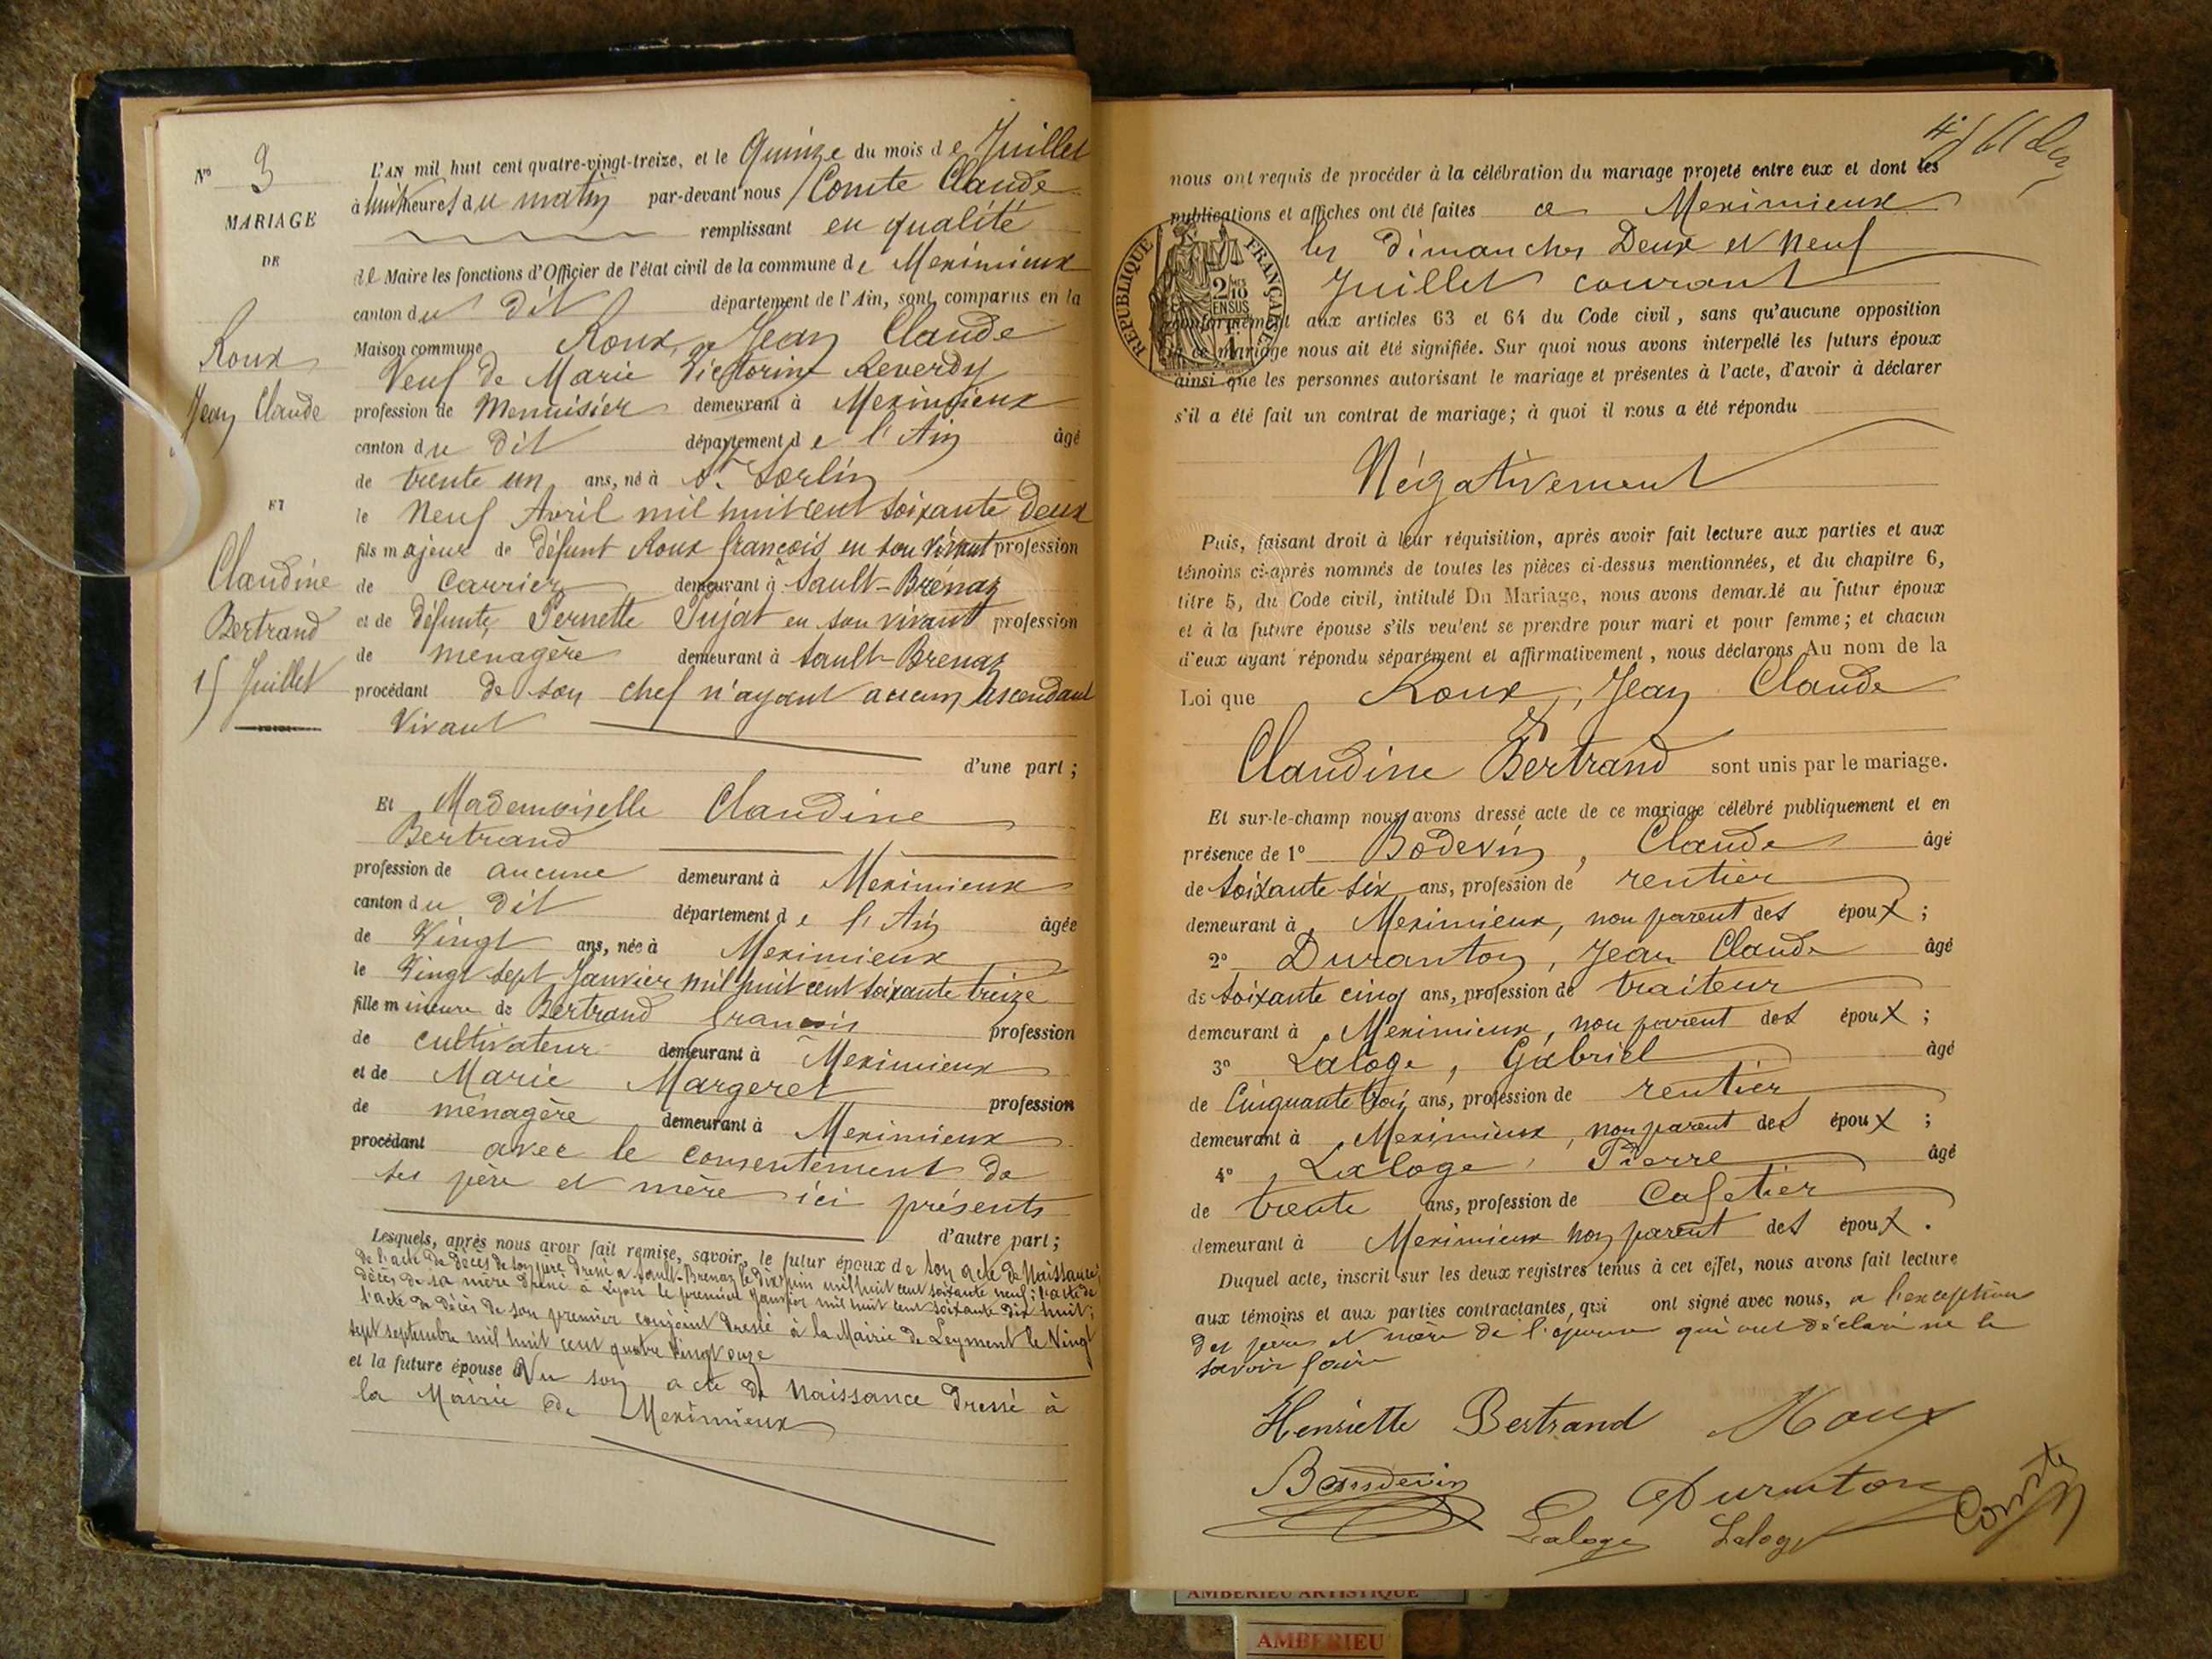 Nº 3
MARIAGE
DE
Roux
Jean Claude
ET
Claudine
Bertrand
15 Juillet
L'AN mil huit cent quatre-vingt-treize, et le Quinze du mois de Juillet
à huit heures du matin par-devant nous Comte Claude
remplissant en qualité
de Maire les fonctions d'Officier de l'état civil de la commune de Meximieux
canton du dit département de l'Ain, sont comparus en la
Maison commune Roux, Jean Claude
Veuf de Marie Victorine Reverdy
profession de Menuisier demeurant à Meximieux
canton du dit département de l'Ain âgé
de trente un ans, né à St Sorlin
le Neuf Avril mil huit cent soixante Deux
fils majeur de défunt Roux françois en son vivant profession
de Carrier demeurant à Sault-Brénaz
et de défunte Pernette Pujat en son vivant profession
de ménagère demeurant à Sault-Brenaz
procédant de son chef n'ayant aucun ascendant
Vivant
d'une part;
Et Mademoiselle Claudine
Bertrand
profession de aucune demeurant à Meximieux
canton du dit département de l'Ain âgée
de Vingt ans, née à Meximieux
le Vingt sept Janvier mil huit cent soixante treize
fille mineure de Bertrand françois profession
de cultivateur demeurant à Meximieux
et de Marie Margeret profession
de ménagère demeurant à Meximieux
procédant avec le consentement de
ses père et mère ici présents
d'autre part;
Lesquels, après nous avoir fait remise, savoir, le futur époux de son acte de Naissance,
de l'acte de décès de son père dressé à Sault-Brenaz le dix juin mil huit cent soixante neuf; l'acte de
décès de sa mère dressé à Lyon le premier Janvier mil huit cent soixante dix huit;
l'acte de décès de son premier conjoint dressé à la Mairie de Leyment le Vingt
sept septembre mil huit cent quatre vingt onze
et la future épouse Vu son acte de Naissance dressé à
la Mairie de Meximieux
nous ont requis de procéder à la célébration du mariage projeté entre eux et dont les
publications et affiches ont été faites à Meximieux
les dimanches Deux et Neuf
Juillet courant
RÉPUBLIQUE FRANÇAISE
2/10
EN SUS
conformément aux articles 63 et 64 du Code civil, sans qu'aucune opposition
à ce mariage nous ait été signifiée. Sur quoi nous avons interpellé les futurs époux
ainsi que les personnes autorisant le mariage et présentes à l'acte, d'avoir à déclarer
s'il a été fait un contrat de mariage; à quoi il nous a été répondu
Négativement
Puis, faisant droit à leur réquisition, après avoir fait lecture aux parties et aux
témoins ci-après nommés de toutes les pièces ci-dessus mentionnées, et du chapitre 6,
titre 5, du Code civil, intitulé Du Mariage, nous avons demandé au futur époux
et à la future épouse s'ils veulent se prendre pour mari et pour femme; et chacun
d'eux ayant répondu séparément et affirmativement, nous déclarons Au nom de la
Loi que Roux, Jean Claude
Et
Claudine Bertrand sont unis par le mariage.
Et sur-le-champ nous avons dressé acte de ce mariage célébré publiquement et en
présence de 1º Bodevin, Claude âgé
de soixante six ans, profession de rentier
demeurant à Meximieux, non parent des époux;
2º Duranton, Jean Claude âgé
de soixante cinq ans, profession de traiteur
demeurant à Meximieux, non parent des époux;
3º Laloge, Gabriel âgé
de Cinquante trois ans, profession de rentier
demeurant à Meximieux, non parent des époux;
4º Laloge, Pierre âgé
de trente ans, profession de Cafetier
demeurant à Meximieux non parent des époux.
Duquel acte, inscrit sur les deux registres tenus à cet effet, nous avons fait lecture
aux témoins et aux parties contractantes, qui ont signé avec nous, à l'exception
des père et mère de l'épouse qui ont déclaré ne le
savoir faire
Henriette Bertrand Roux
Baudevin Duranton Comte
Laloge Laloge
AMBERIEU ARTISTIQUE
AMBERIEU